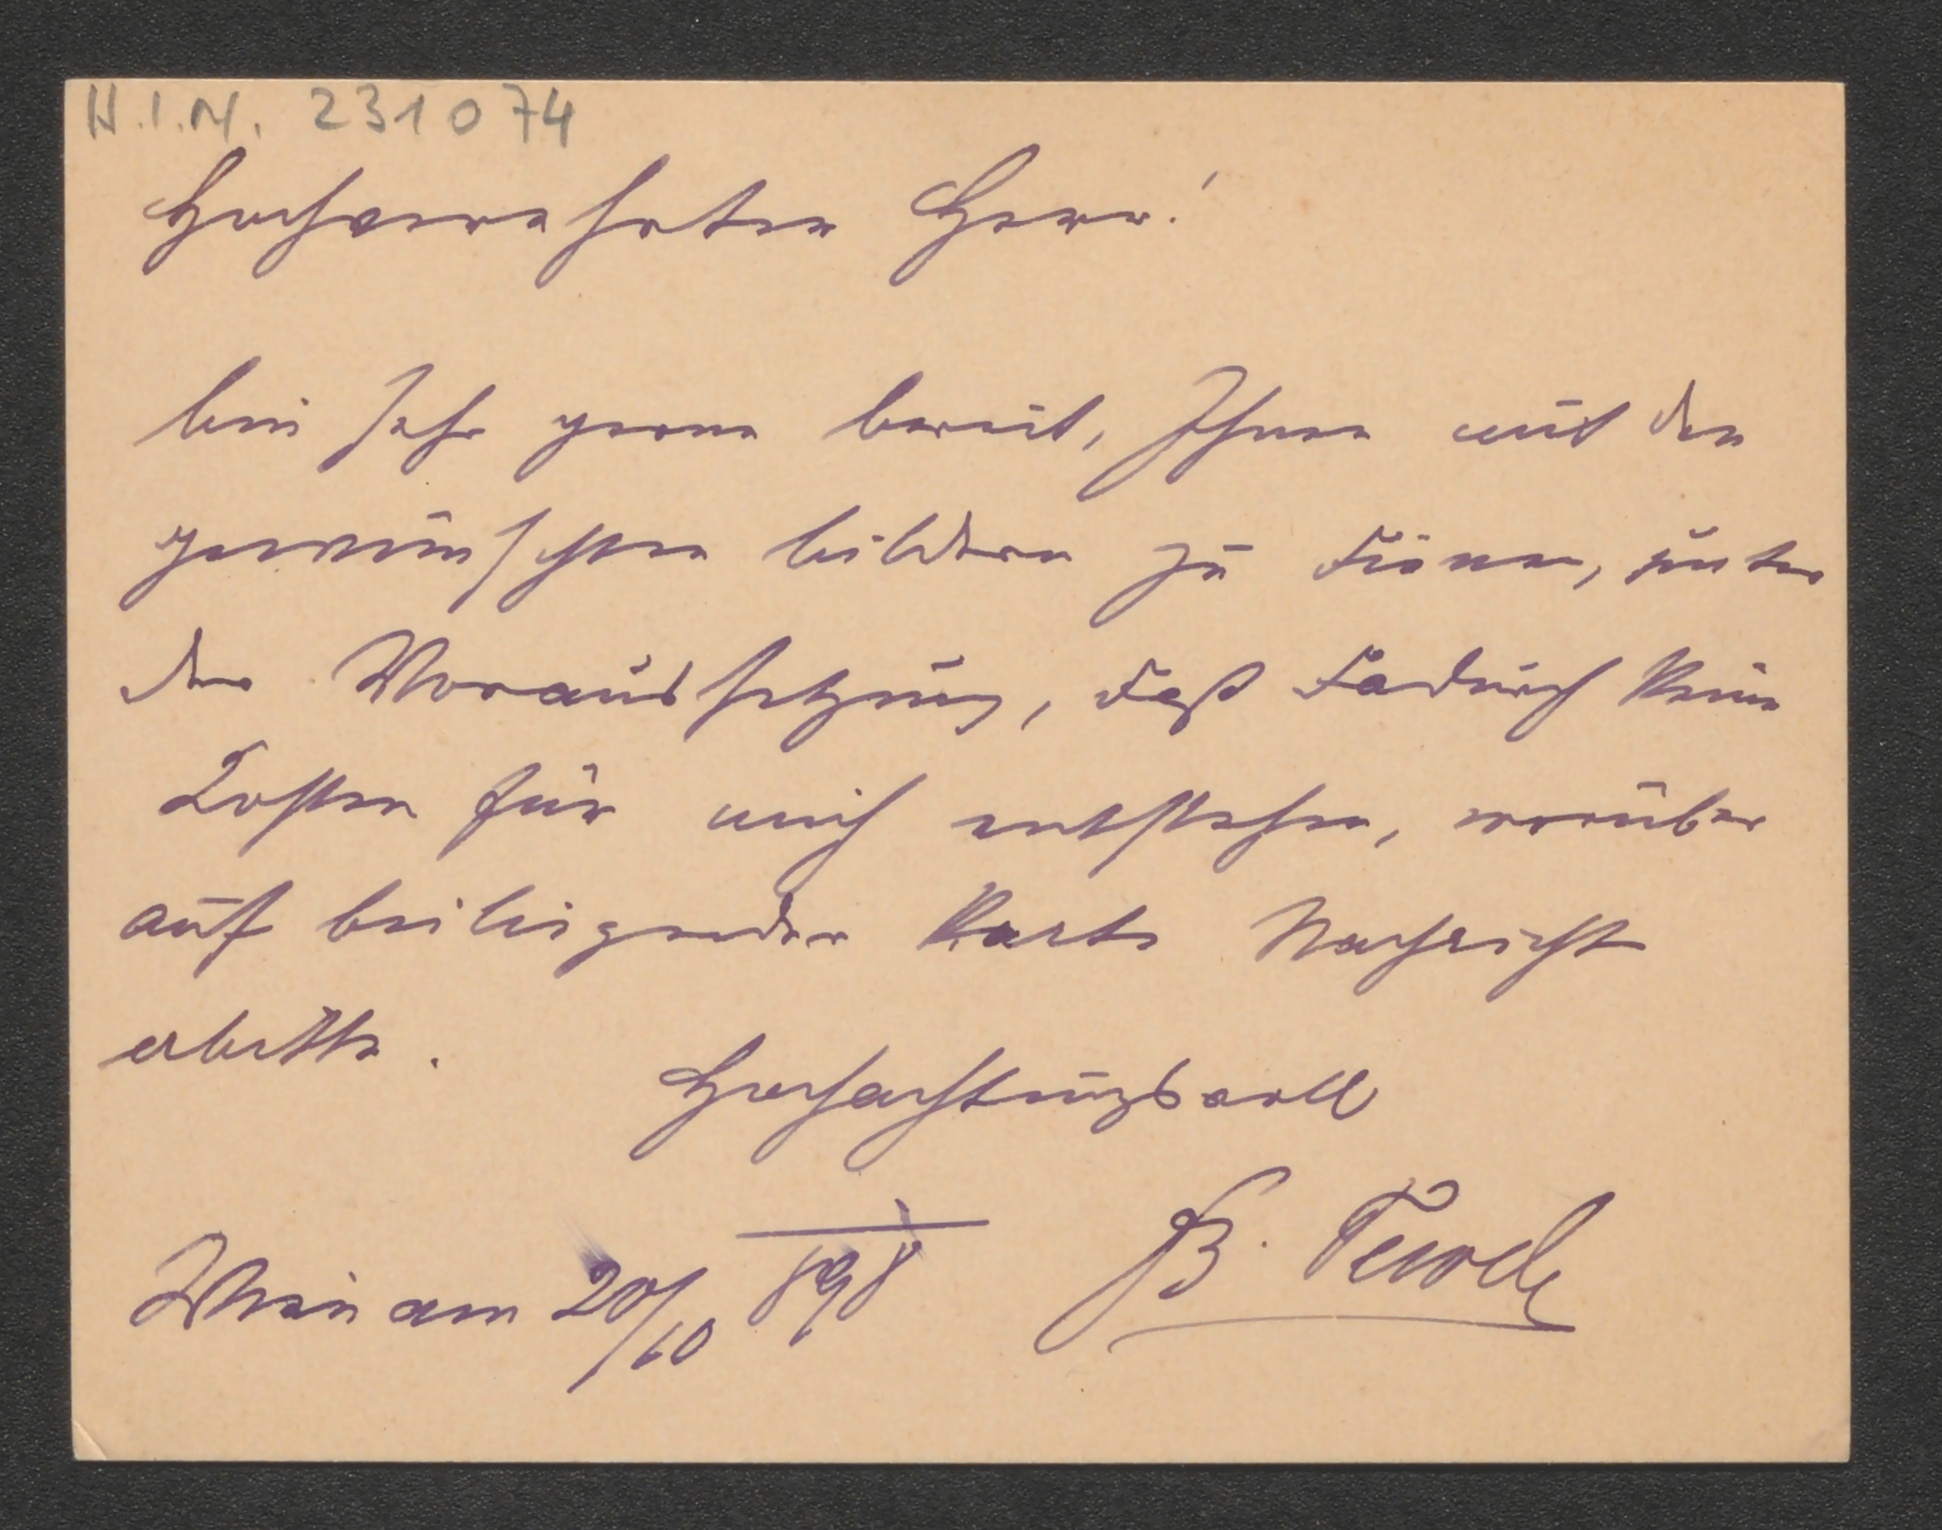 H.I.N. 231074
Hochverehrter Herr!
bin sehr gerne bereit, Ihnen mit den
gewünschten bildern zu dienen, unter
der Voraussetzung, daß dadurch keine
Kosten für mich entstehen, worüber
auf beiliegender Karte Nachricht
erbitte.
Hochachtungsvoll
Wien am 20/10 898 B.